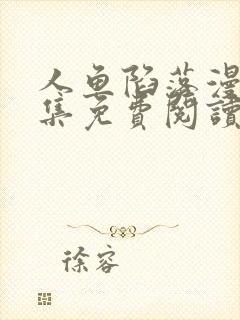 人鱼陷落漫
集免費閱讀
徐容